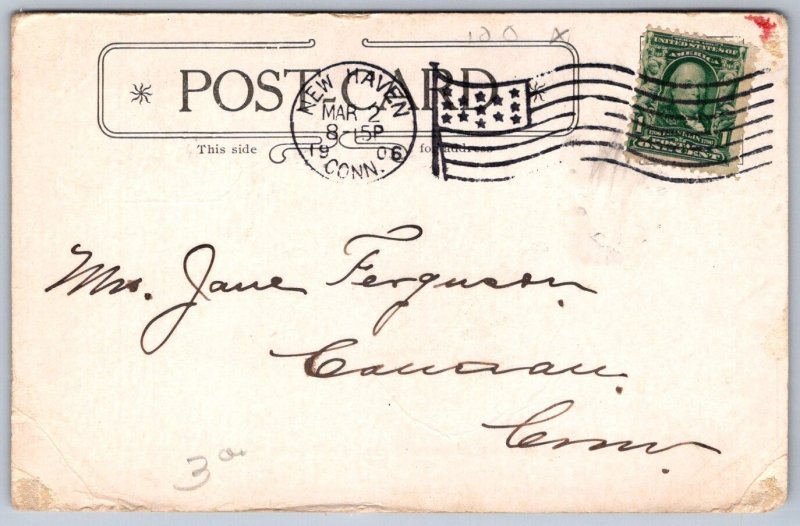 120 x
POST CARD
This side for address
NEW HAVEN
MAR 2
8-15P
1906
CONN.
UNITED STATES OF AMERICA
FRANKLIN
POSTAGE
ONE CENT
Mrs. Jane Ferguson.
Canaan.
Conn.
3